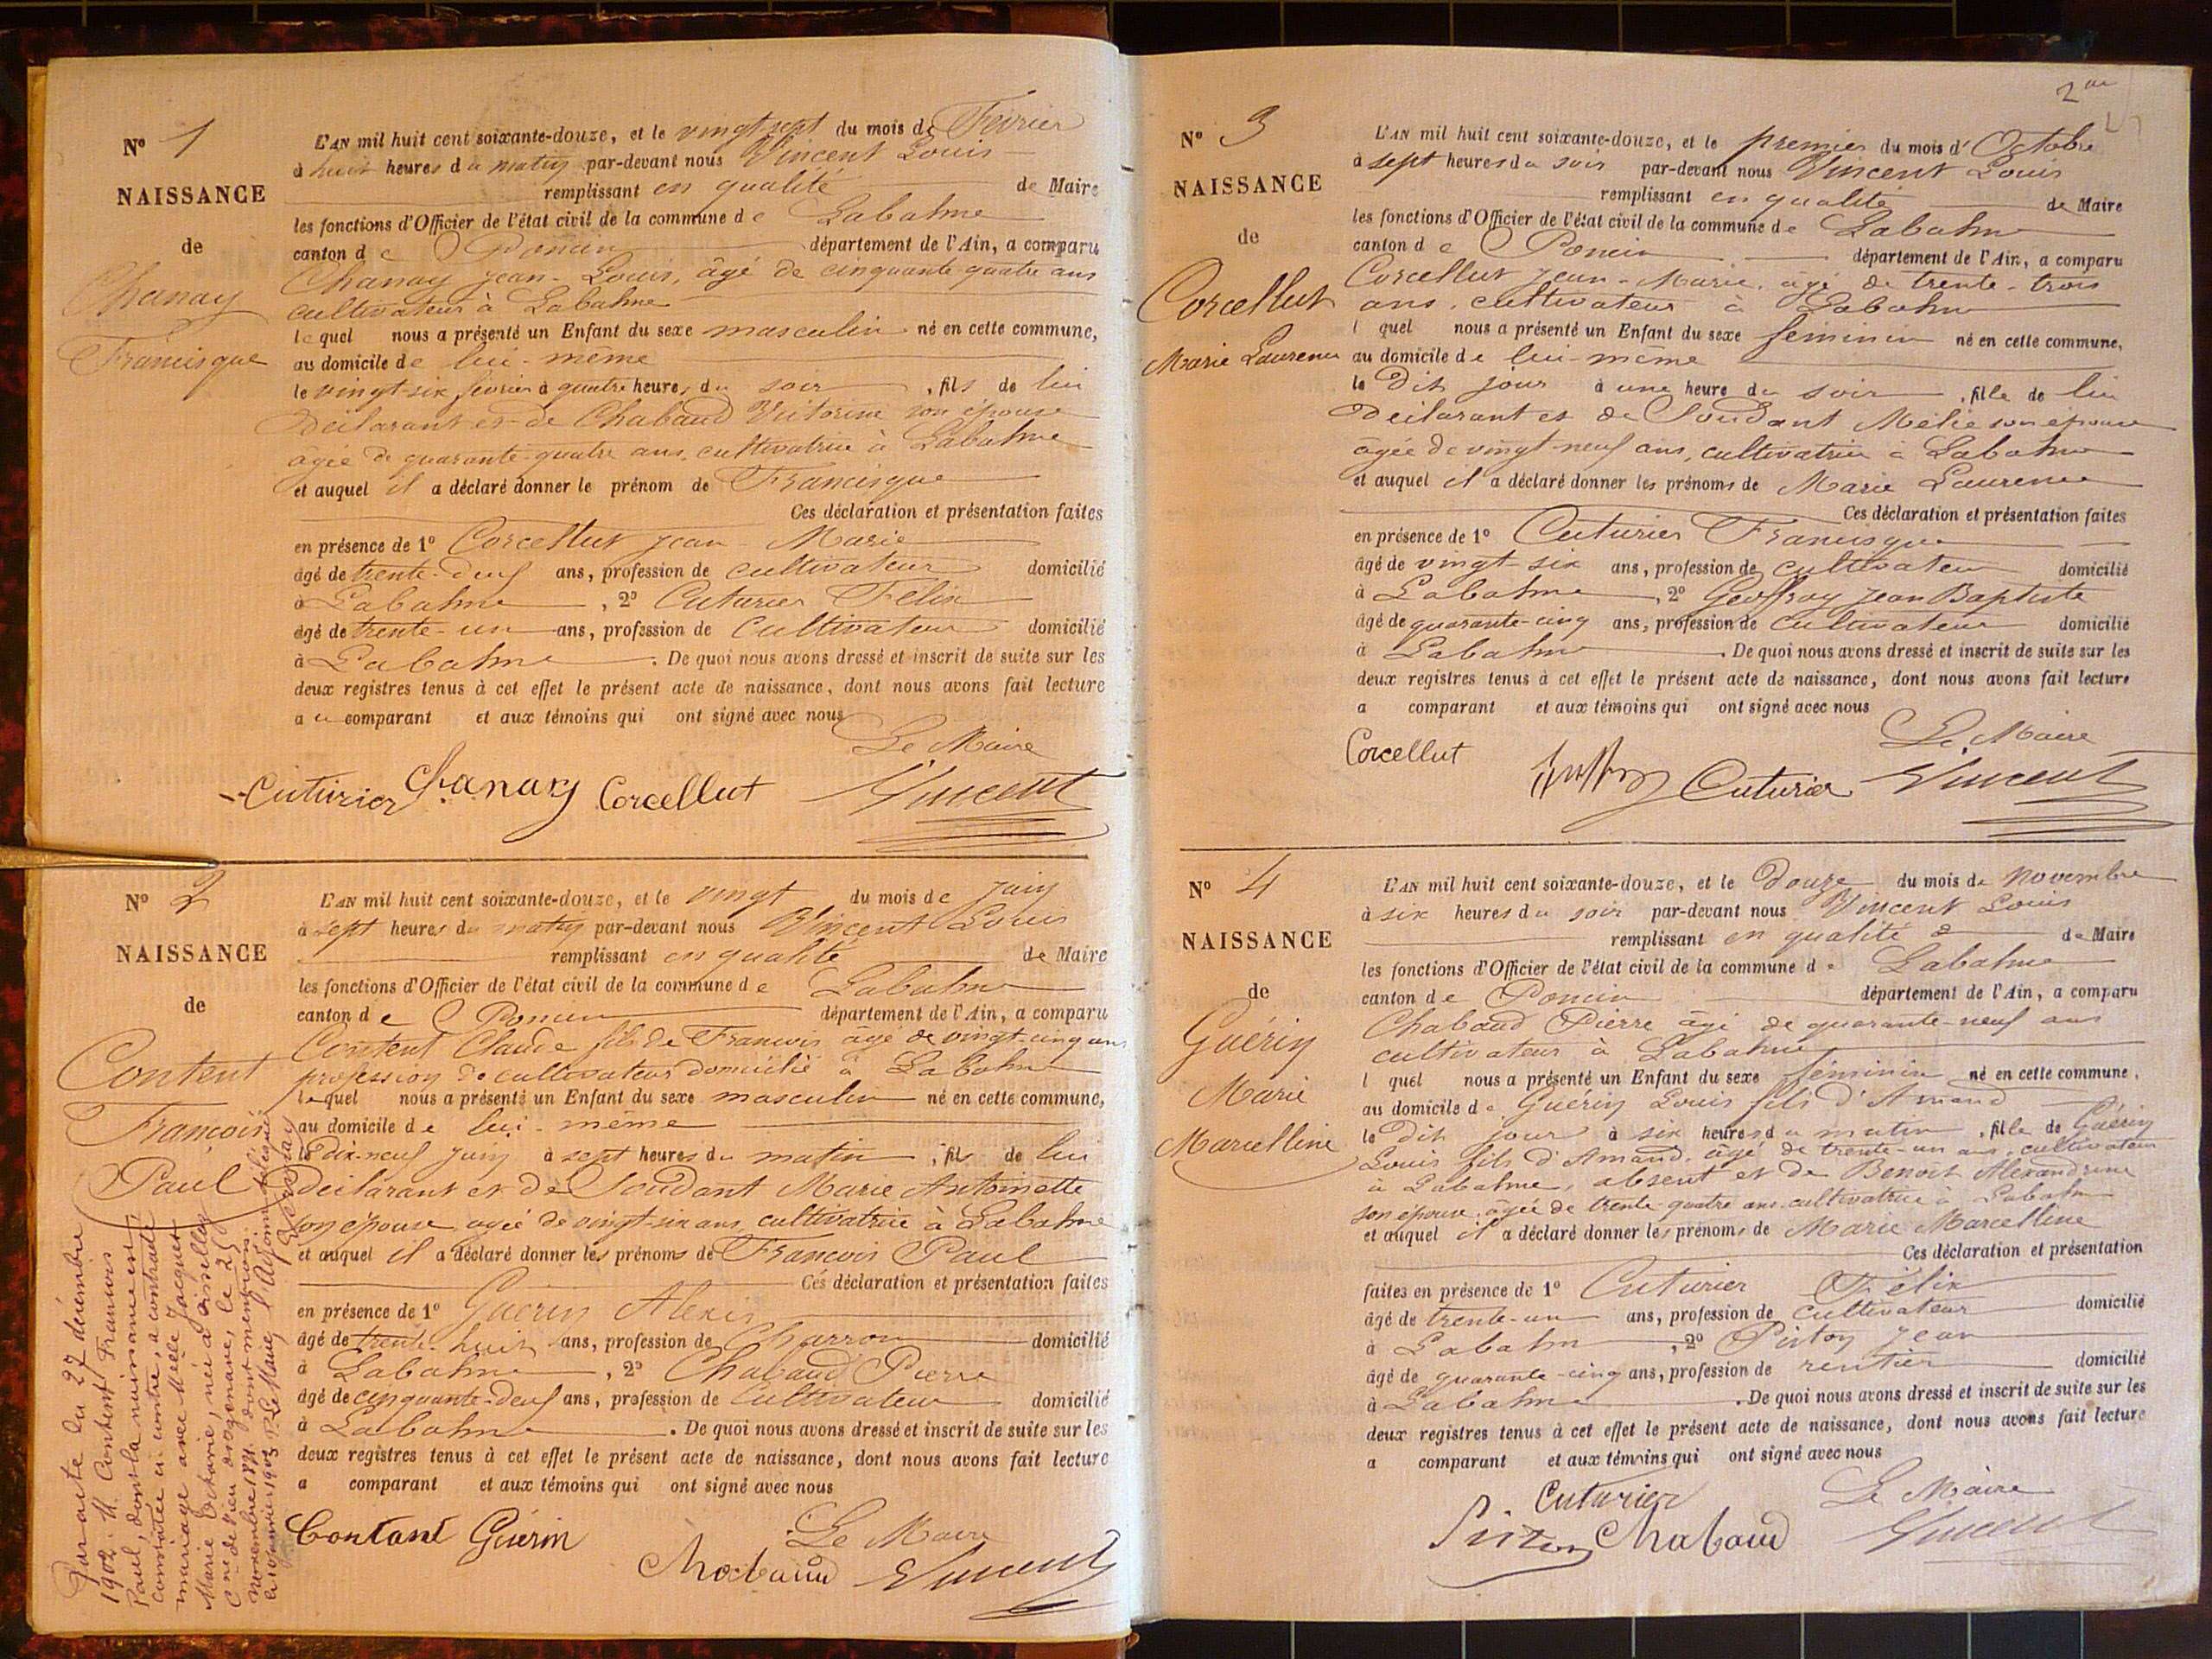 N° 1
NAISSANCE
de
Chanay
Francisque
L'AN mil huit cent soixante-douze, et le vingt sept du mois de Février
à huit heures du matin par-devant nous Vincent Louis
remplissant en qualité de Maire
les fonctions d'Officier de l'état civil de la commune de Labalme
canton de Poncin département de l'Ain, a comparu
Chanay Jean-Louis, âgé de cinquante quatre ans
cultivateur à Labalme
lequel nous a présenté un Enfant du sexe masculin né en cette commune,
au domicile de lui-même
le vingt-six février à quatre heures du soir, fils de lui
déclarant et de Chabaud Victorine son épouse
âgée de quarante-quatre ans, cultivatrice à Labalme
et auquel il a déclaré donner le prénom de Francisque
Ces déclaration et présentation faites
en présence de 1° Corcellut Jean Marie
âgé de trente-deux ans, profession de cultivateur domicilié
à Labalme, 2° Cuturier Félix
âgé de trente-un ans, profession de Cultivateur domicilié
à Labalme. De quoi nous avons dressé et inscrit de suite sur les
deux registres tenus à cet effet le présent acte de naissance, dont nous avons fait lecture
au comparant et aux témoins qui ont signé avec nous
Le Maire
Cuturier Chanay Corcellut Vincent
N° 2
NAISSANCE
de
Content
François
Paul
L'AN mil huit cent soixante-douze, et le vingt du mois de juin
à sept heures du matin par-devant nous Vincent Louis
remplissant en qualité de Maire
les fonctions d'Officier de l'état civil de la commune de Labalme
canton de Poncin département de l'Ain, a comparu
Content Claude fils de François âgé de vingt-cinq ans
profession de cultivateur domicilié à Labalme
lequel nous a présenté un Enfant du sexe masculin né en cette commune,
au domicile de lui-même
le Dix-neuf juin à sept heures du matin, fils de lui
déclarant et de Soudant Marie Antoinette
son épouse agée de vingt-six ans, cultivatrice à Labalme
et auquel il a déclaré donner les prénoms de François Paul
Ces déclaration et présentation faites
en présence de 1° Guérin Alexis
âgé de trente-huit ans, profession de Charron domicilié
à Labalme, 2° Chabaud Pierre
âgé de cinquante-deux ans, profession de Cultivateur domicilié
à Labalme. De quoi nous avons dressé et inscrit de suite sur les
deux registres tenus à cet effet le présent acte de naissance, dont nous avons fait lecture
a comparant et aux témoins qui ont signé avec nous
Le Maire
Contant Guérin Chabaud Vincent
Par acte du 27 décembre
1902, M. Content François
Paul, dont la naissance est
constatée ci-contre, a contracté
mariage avec Melle Jacquet
Marie Octavie, née à
novembre 1871 dont mention
le Maire, l'Adjoint délégué
2
N° 3
NAISSANCE
de
Corcellut
Marie Laurence
L'AN mil huit cent soixante-douze, et le premier du mois d'Octobre
à sept heures du soir par-devant nous Vincent Louis
remplissant en qualité de Maire
les fonctions d'Officier de l'état civil de la commune de Labalme
canton de Poncin département de l'Ain, a comparu
Corcellut Jean-Marie, âgé de trente-trois
ans, cultivateur à Labalme
l quel nous a présenté un Enfant du sexe féminin né en cette commune,
au domicile de lui-même
le Dit jour à une heure du soir, fille de lui
déclarant et de Soudant Mélie son épouse
âgée de vingt-neuf ans, cultivatrice à Labalme
et auquel il a déclaré donner les prénoms de Marie Laurence
Ces déclaration et présentation faites
en présence de 1° Cuturier Francisque
âgé de vingt-six ans, profession de Cultivateur domicilié
à Labalme, 2° Geoffray Jean Baptiste
âgé de quarante-cinq ans, profession de Cultivateur domicilié
à Labalme. De quoi nous avons dressé et inscrit de suite sur les
deux registres tenus à cet effet le présent acte de naissance, dont nous avons fait lecture
a comparant et aux témoins qui ont signé avec nous
Le Maire
Corcellut Cuturier Vincent
N° 4
NAISSANCE
de
Guérin
Marie
Marcelline
L'AN mil huit cent soixante-douze, et le Douze du mois de novembre
à six heures du soir par-devant nous Vincent Louis
remplissant en qualité de Maire
les fonctions d'Officier de l'état civil de la commune de Labalme
canton de Poncin département de l'Ain, a comparu
Chabaud Pierre âgé de quarante-neuf ans
cultivateur à Labalme
l quel nous a présenté un Enfant du sexe féminin né en cette commune,
au domicile de Guérin Louis fils d'Amand
le Dit jour à six heures du matin, fille de Guérin
Louis fils d'Amand, âgé de trente-un ans, cultivateur
à Labalme, absent et de Benoit Alexandrine
son épouse, âgée de trente-quatre ans, cultivatrice à Labalme
et auquel il a déclaré donner les prénoms de Marie Marcelline
Ces déclaration et présentation
faites en présence de 1° Cuturier Félix
âgé de trente-un ans, profession de Cultivateur domicilié
à Labalme, 2° Piston Jean
âgé de quarante-cinq ans, profession de rentier domicilié
à Labalme. De quoi nous avons dressé et inscrit de suite sur les
deux registres tenus à cet effet le présent acte de naissance, dont nous avons fait lecture
a comparant et aux témoins qui ont signé avec nous
Cuturier Le Maire
Piston Chabaud Vincent